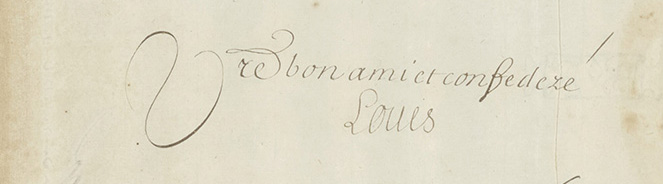 Vre bon ami et confederé
Louis